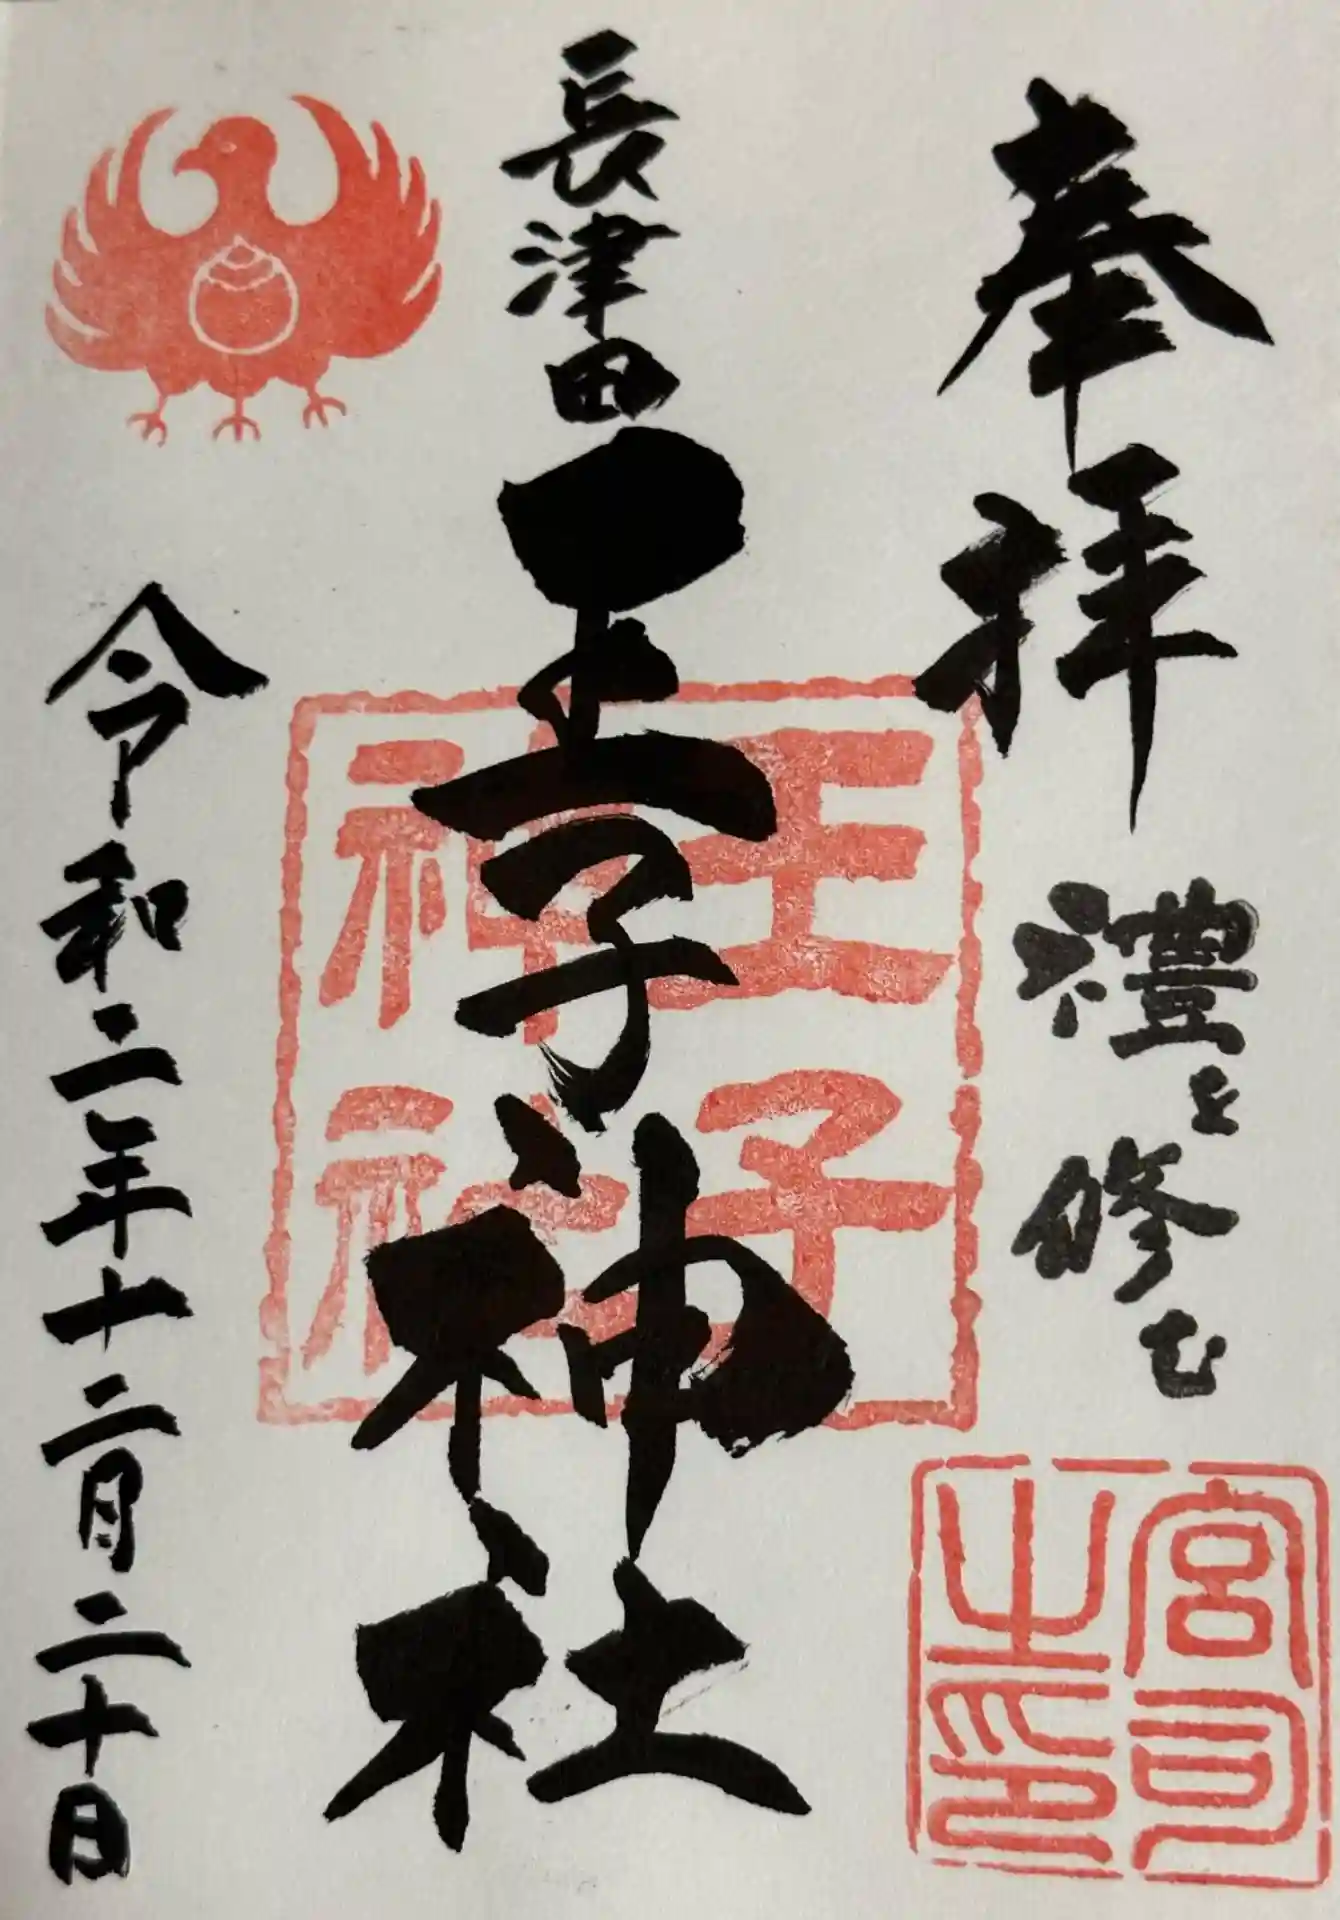 奉拝
禮を修む
宮司之印
長津田
王子神社
王子神社
令和二年十二月二十日